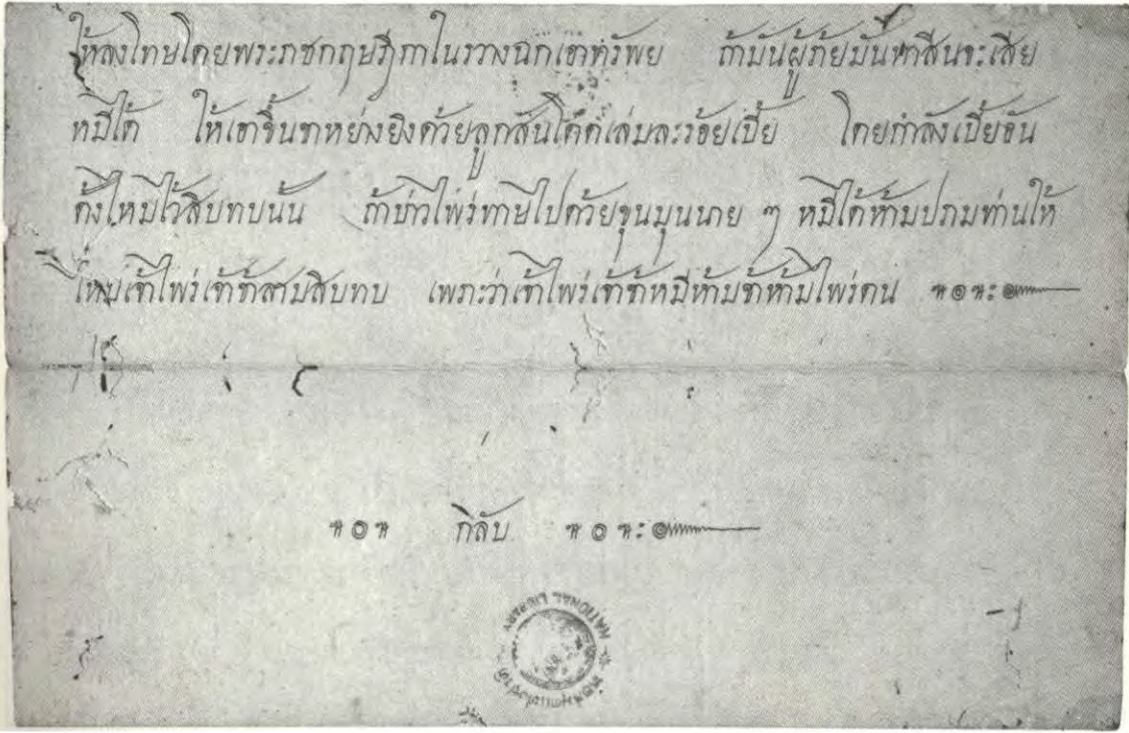 ให้ลงโทษโดยพระราชกฤษฎีกาในรวางฉกเอาทรัพย ถ้าบันผู้ภัยบันดาสีนจะเสีย
หมีได้ ให้เอาขึ้นขาหย่างยิงด้วยลูกสันโดดเล่มละร้อยเบี้ย โดยกำลังเบี้ยอัน
ตั้งไหมไว้สิบทบนั้น ถ้าบ่าวไพร่ทาษไปด้วยขุนมุนนาย ๆ หมีได้ห้ามปรามท่านให้
ไหมเจ้าไพร่เจ้าข้าสามสิบทบ เพราะว่าเจ้าไพร่เจ้าข้าหมีห้ามข้าห้ามไพร่ตน ฯ๏ฯะ๛
ฯ๏ฯ กิลับ ฯ๏ฯะ๛
NATIONAL LIBRARY